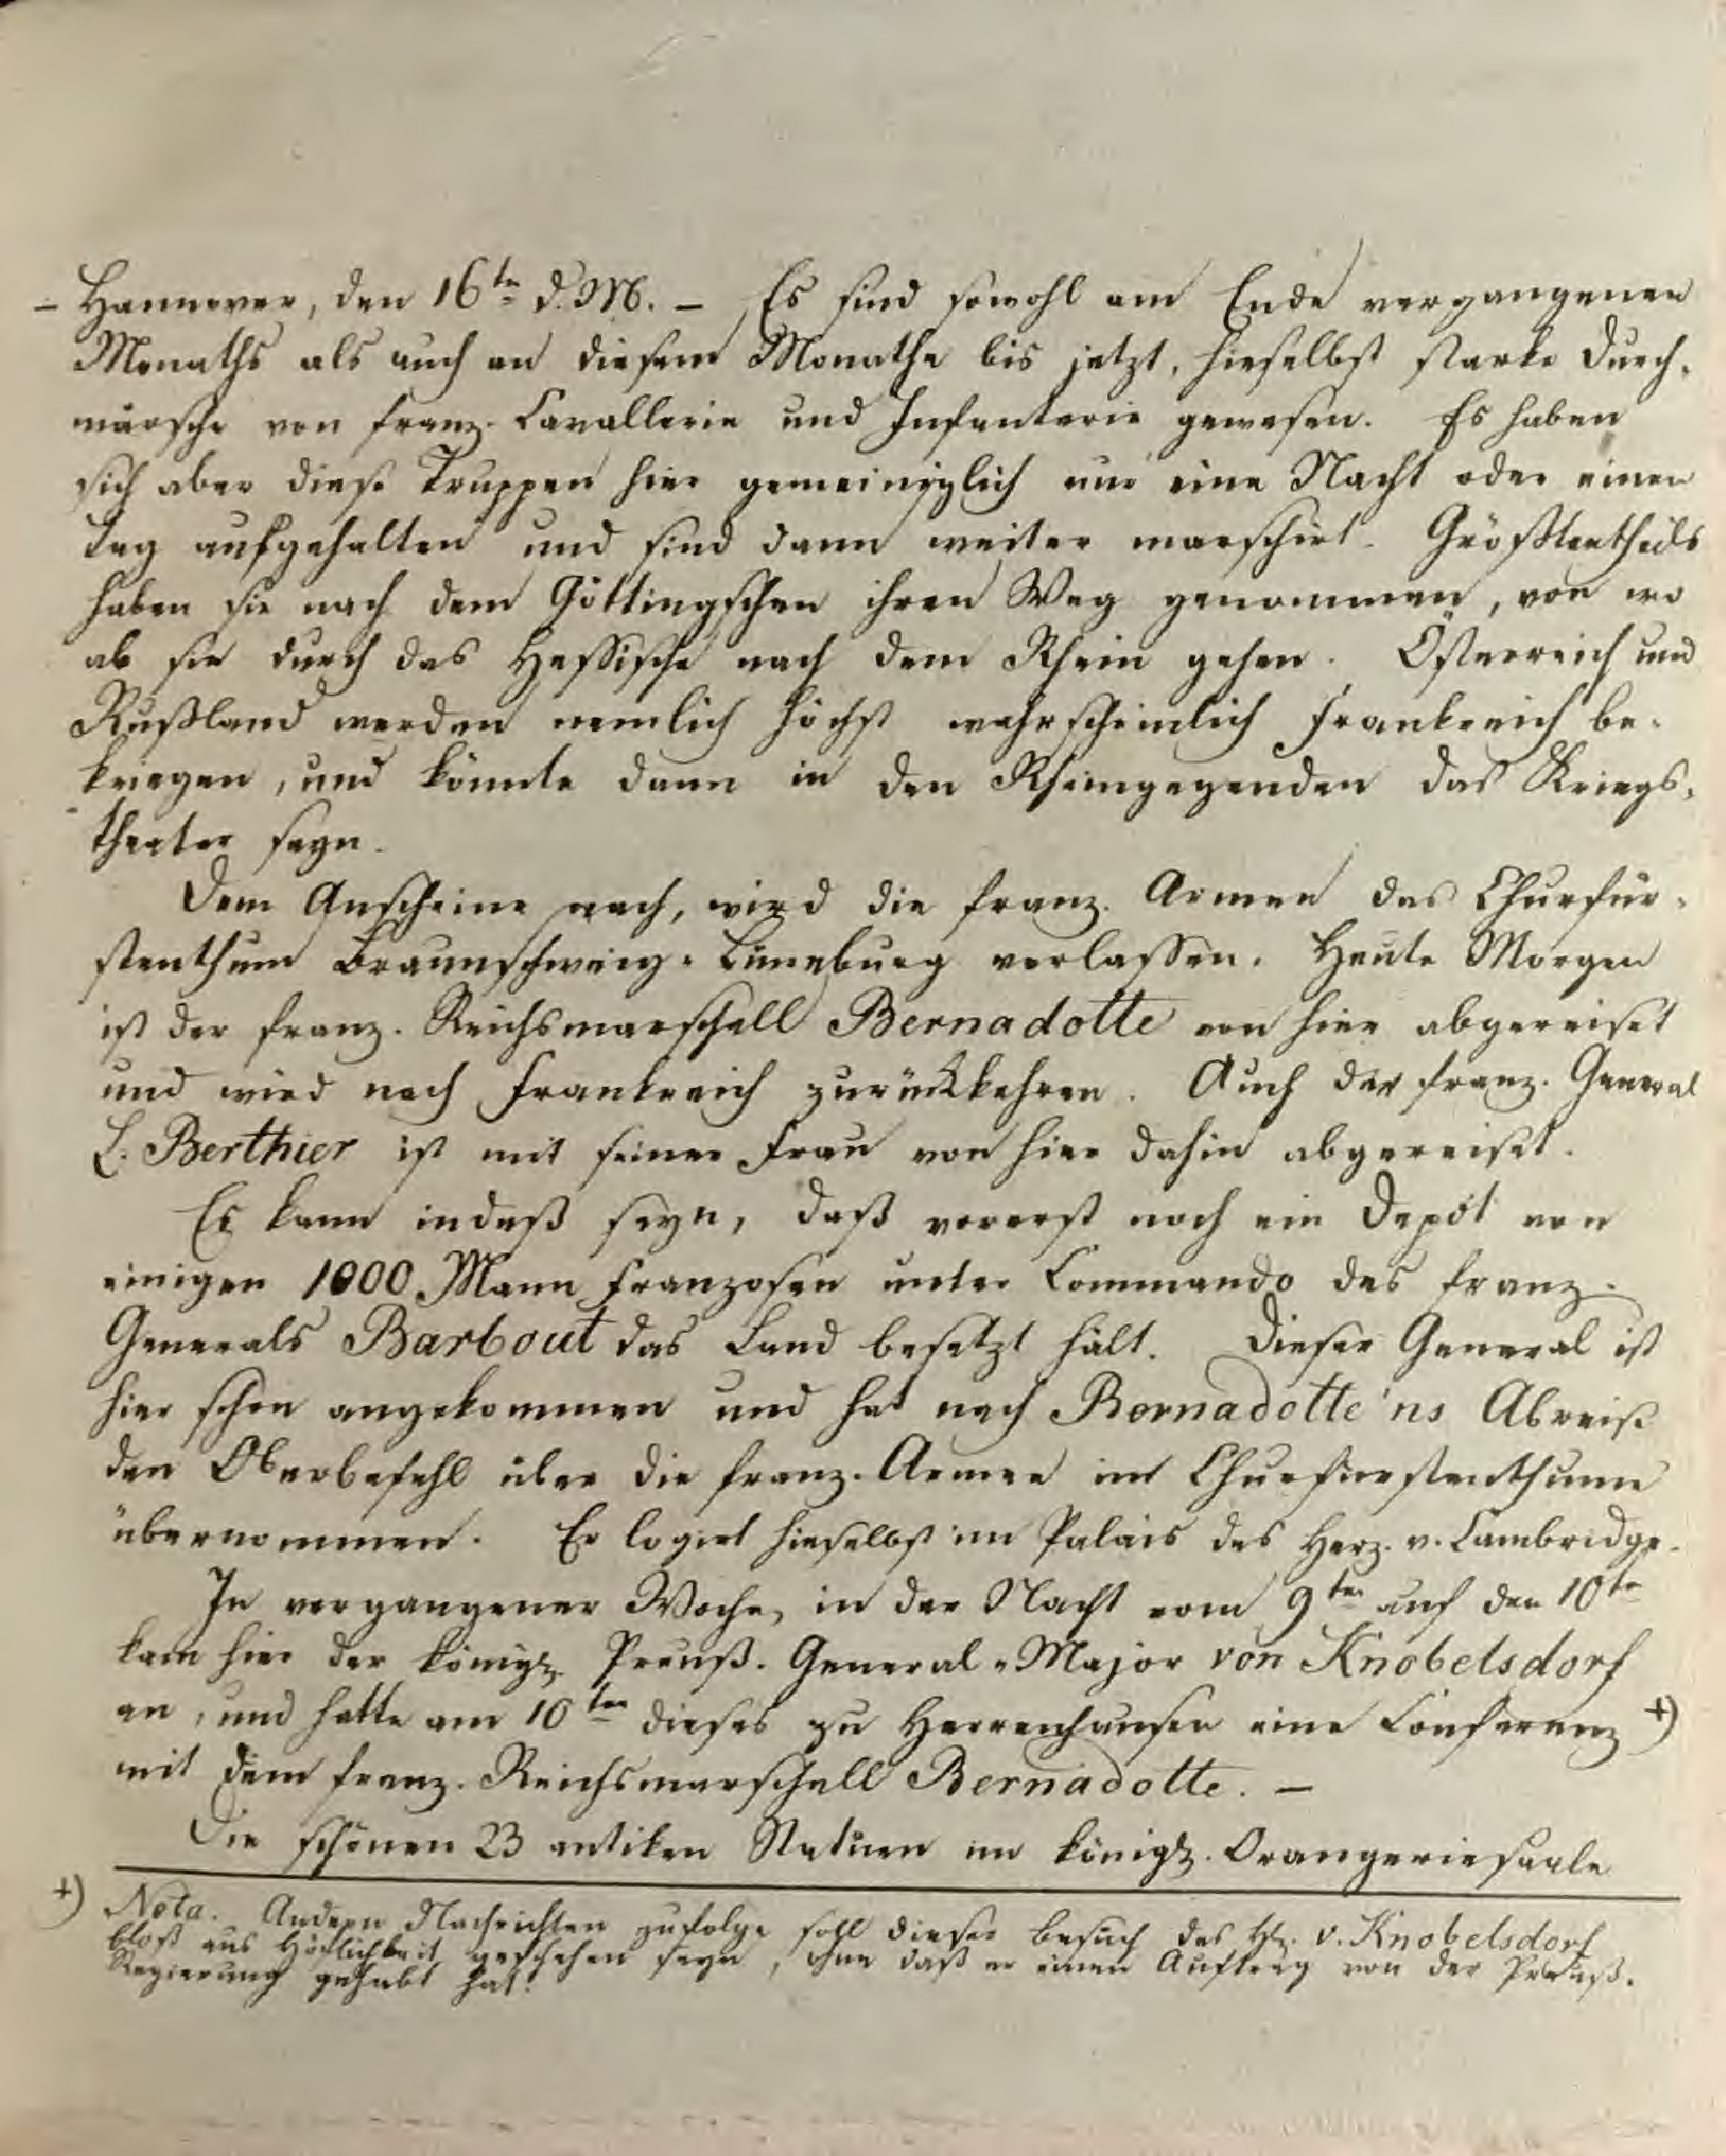 – Hannover, den 16ten d. M. – Es sind sowohl am Ende vergangenen
Monaths als auch an diesem Monathe bis jetzt, hieselbst starke Durch-
märsche von franz. Cavallerie und Infanterie gewesen. Es haben
sich aber diese Truppen hier gemeiniglich nur eine Nacht oder einen
Tag aufgehalten und sind dann weiter marschirt. Größtentheils
haben sie nach dem Göttingschen ihren Weg genommen, von wo
ab sie durch das Hessische nach dem Rhein gehen. Österreich und
Rußland werden nemlich höchst wahrscheinlich Frankreich be-
kriegen, und könnte dann in den Rheingegenden das Kriegs-
theater seyn.
Dem Anscheine nach, wird die franz. Armee das Churfür-
stenthum Braunschweig-Lüneburg verlassen. Heute Morgen
ist der franz. Reichsmarschall Bernadotte von hier abgereiset
und wird nach Frankreich zurückkehren. Auch der franz. General
L. Berthier ist mit seiner Frau von hier dahin abgereiset.
Es kann indeß seyn, daß vorerst noch ein Depôt von
einigen 1000 Mann Franzosen unter Commando des franz.
Generals Barbout das Land besetzt hält. Dieser General ist
hier schon angekommen und hat nach Bernadotte'ns Abreise
den Oberbefehl über die franz. Armee im Churfürstenthume
übernommen. Er logirt hieselbst im Palais des Herz. v. Cambridge.
In vergangener Woche, in der Nacht vom 9ten auf den 10ten
kam hier der königl. Preuß. General-Major von Knobelsdorf
an, und hatte am 10ten dieses zu Herrenhausen eine Conferenz +)
mit dem franz. Reichsmarschall Bernadotte. –
Die schönen 23 antiken Statüen im königl. Orangeriesaale
+) Nota. Andern Nachrichten zufolge soll dieser Besuch des H. v. Knobelsdorf
bloß aus Höflichkeit geschehen seyn, ohne daß er einen Auftrag von der Preuß.
Regierung gehabt hat.